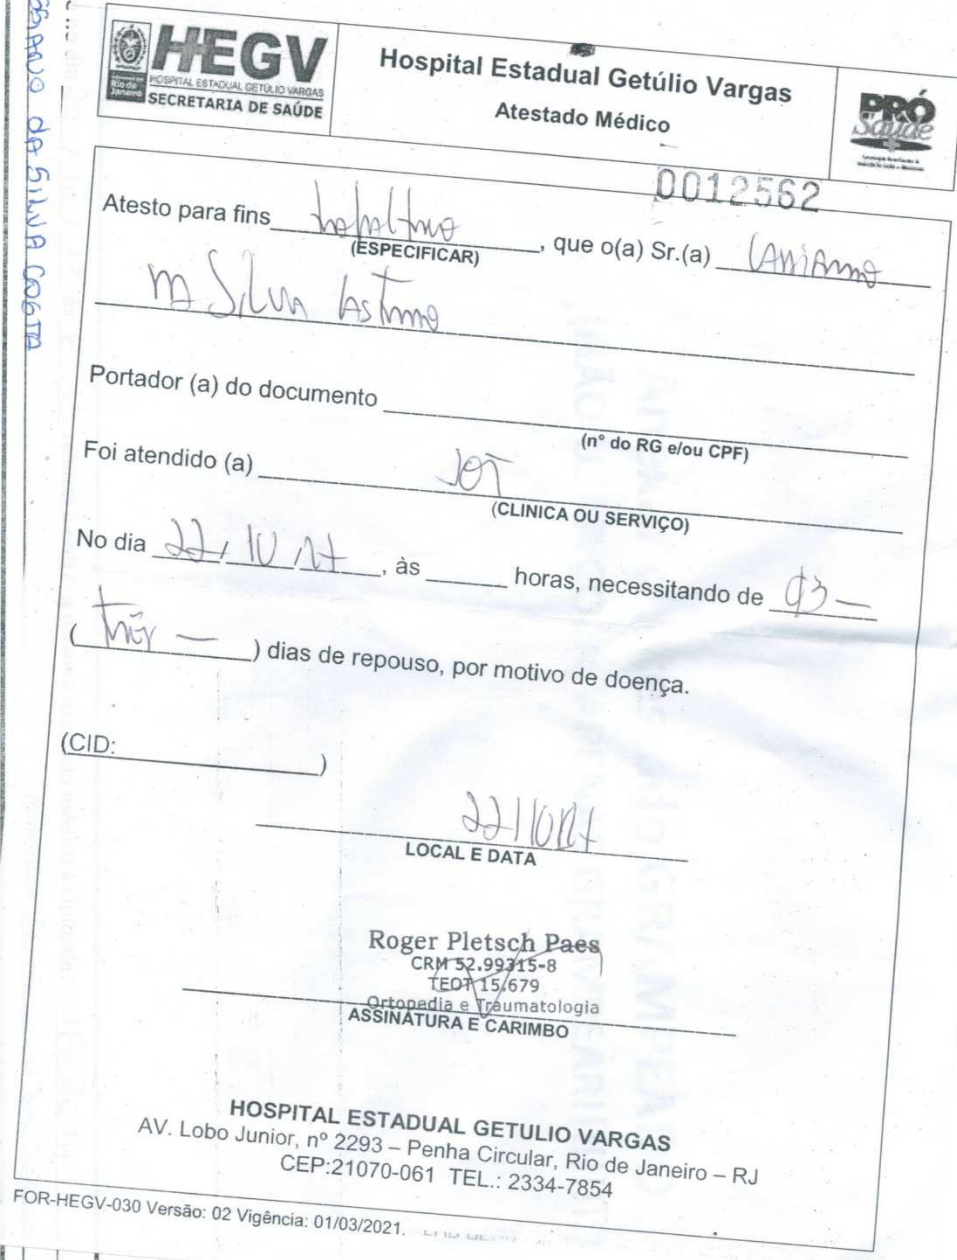 HEGV
HOSPITAL ESTADUAL GETÚLIO VARGAS
SECRETARIA DE SAÚDE
Hospital Estadual Getúlio Vargas
Atestado Médico
PRÓ
Saúde
0012562
Atesto para fins
(ESPECIFICAR)
, que o(a) Sr.(a)
Silva
Portador (a) do documento
(nº do RG e/ou CPF)
Foi atendido (a)
(CLINICA OU SERVIÇO)
No dia 22/10/17, às ______ horas, necessitando de 03 —
( três — ) dias de repouso, por motivo de doença.
(CID: )
22/10/17
LOCAL E DATA
Roger Pletsch Paes
CRM 52.99315-8
TEOT 15.679
Ortopedia e Traumatologia
ASSINATURA E CARIMBO
HOSPITAL ESTADUAL GETULIO VARGAS
AV. Lobo Junior, nº 2293 – Penha Circular, Rio de Janeiro – RJ
CEP:21070-061 TEL.: 2334-7854
FOR-HEGV-030 Versão: 02 Vigência: 01/03/2021.
DA SILVA COSTA